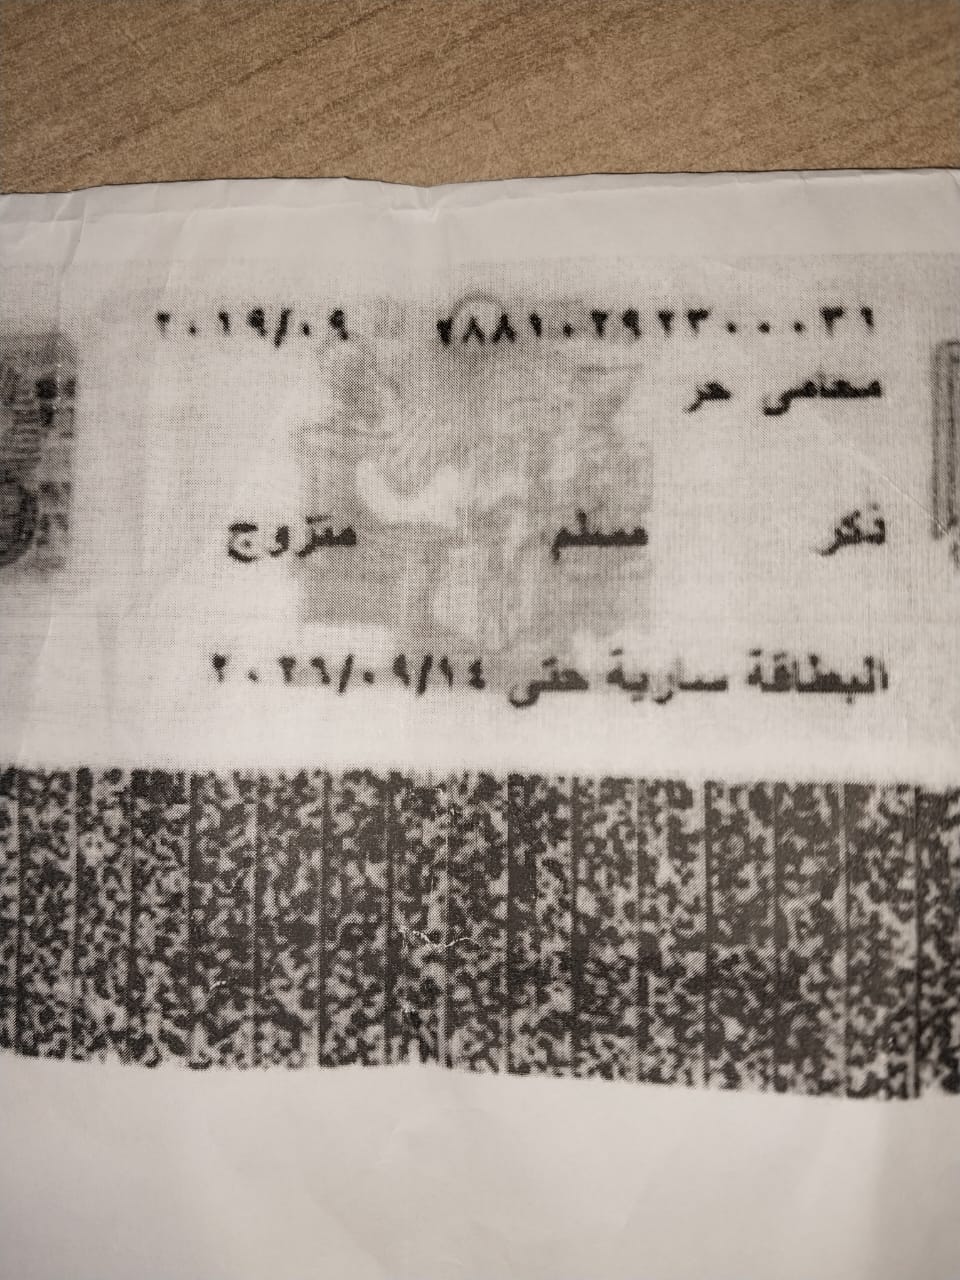 ٢٨٨١٠٢٩٢٣٠٠٠٣١ ٢٠١٩/٠٩
محامى حر
ذكر مسلم متزوج
البطاقة سارية حتى ٢٠٢٦/٠٩/١٤